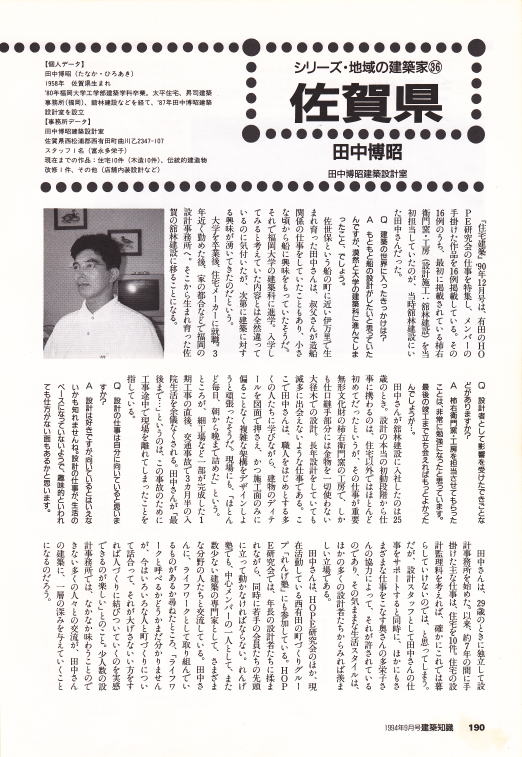 シリーズ・地域の建築家㊱
佐賀県
田中博昭
田中博昭建築設計室
【個人データ】
田中博昭（たなか・ひろあき）
1958年　佐賀県生まれ
'80年福岡大学工学部建築学科卒業。太平住宅、昇司建築
事務所（福岡）、舘林建設などを経て、'87年田中博昭建築
設計室を設立
【事務所データ】
田中博昭建築設計室
佐賀県西松浦郡西有田町曲川乙2347-107
スタッフ1名（富永多栄子）
現在までの作品：住宅10件（木造10件）、伝統的建造物
改修1件、その他（店舗内装設計など）
『住宅建築』'90年12月号は、有田のHO
PE研究会の仕事を特集し、メンバーの
手掛けた作品を16例掲載している。その
16例のうち、最初に掲載されている柿右
衛門窯・工房（設計施工：舘林建設）を当
初担当していたのが、当時舘林建設にい
た田中さんだった。
Q　建築の世界に入ったきっかけは？
A　もともと船の設計がしたいと思っていた
んですが、漠然と大学の建築科に進んでしま
ったこと、でしょう。
佐世保という船の町に近い伊万里で生
まれ育った田中さんは、叔父さんが造船
関係の仕事をしていたこともあり、小さ
な頃から船に興味をもっていたそうだ。
それで福岡大学の建築科に進学。入学し
てみると考えていた内容とは全然違って
いるのに気付いたが、次第に建築に対す
る興味が湧いてきたのだという。
大学を卒業後、住宅メーカーに就職。3
年近く勤めた後、家の都合などで福岡の
設計事務所へ。そこから生まれ育った佐
賀の舘林建設に移ることになる。
Q　設計者として影響を受けたできごとな
どがありますか？
A　柿右衛門窯・工房を担当させてもらった
ことは、非常に勉強になったと思っています。
最後の竣工まで立ち会えればもっとよかった
んでしょうが…。
田中さんが舘林建設に入社したのは25
歳のとき。設計の本当の初動段階から仕
事に携わるのは、住宅以外ではほとんど
初めてだったというが、その仕事が重要
無形文化財の柿右衛門窯の工房で、しか
も仕口継手部分には金物を一切使わない
大径木での設計と、長年設計をしていても
滅多に出会えないような仕事である。こ
こで田中さんは、職人をはじめとする多
くの人たちに学びながら、建物のディテ
ールを図面で押さえ、かつ施工面のみに
偏ることなく複雑な架構をデザインしよ
うと頑張ったそうだ。現場にも、「ほとん
ど毎日、朝から晩まで詰めた」という。
ところが、細工場など一部が完成した1
期工事の直後、交通事故で3カ月半の入
院生活を余儀なくされる。田中さんが「最
後まで…」というのは、この事故のために
工事途中で現場を離れてしまったことを
指している。
Q　設計の仕事は自分に向いていると思いま
すか？
A　設計は好きですが、向いているとはいえな
いかも知れませんね。設計の仕事が、生活の
ペースになっていないようで、趣味的といわれ
ても仕方がない面もあるかと思います。
田中さんは、29歳のときに独立して設
計事務所を始めた。以来、約7年の間に手
掛けた主な仕事は、住宅を10件。住宅の設
計監理料を考えれば、確かにこれでは暮
らしていけないのでは、と思ってしまう。
だが、設計スタッフとして田中さんの仕
事をサポートすると同時に、ほかにもさ
まざまな仕事をこなす奥さんの多栄子さ
んの協力によって、それが許されている
のであり、その気ままな生活スタイルは、
ほかの多くの設計者たちからみれば羨ま
しい立場である。
田中さんは、HOPE研究会のほか、現
在活動している西有田の町づくりグルー
プ「れんげ塾」にも参加している。HOP
E研究会では、年長の設計者たちに揉ま
れながら、同時に若手の会員たちの先頭
に立って動かなければならない。れんげ
塾でも、中心メンバーの一人として、また
数少ない建築の専門家として、さまざま
な分野の人たちと交流している。田中さ
んに、ライフワークとして取り組んでい
るものがあるか尋ねたところ、「ライフワ
ークと呼べるかどうかまだ分かりません
が、今はいろいろな人と町づくりについ
て話合って、それが大げさないい方をす
れば人づくりに結びついていくのを実感
できるのが楽しい」とのこと。少人数の設
計事務所では、なかなか味わうことので
きない多くの人々との交流が、田中さん
の建築に、一層の深みを与えていくこと
になるのだろう。
1994年9月号 建築知識　190